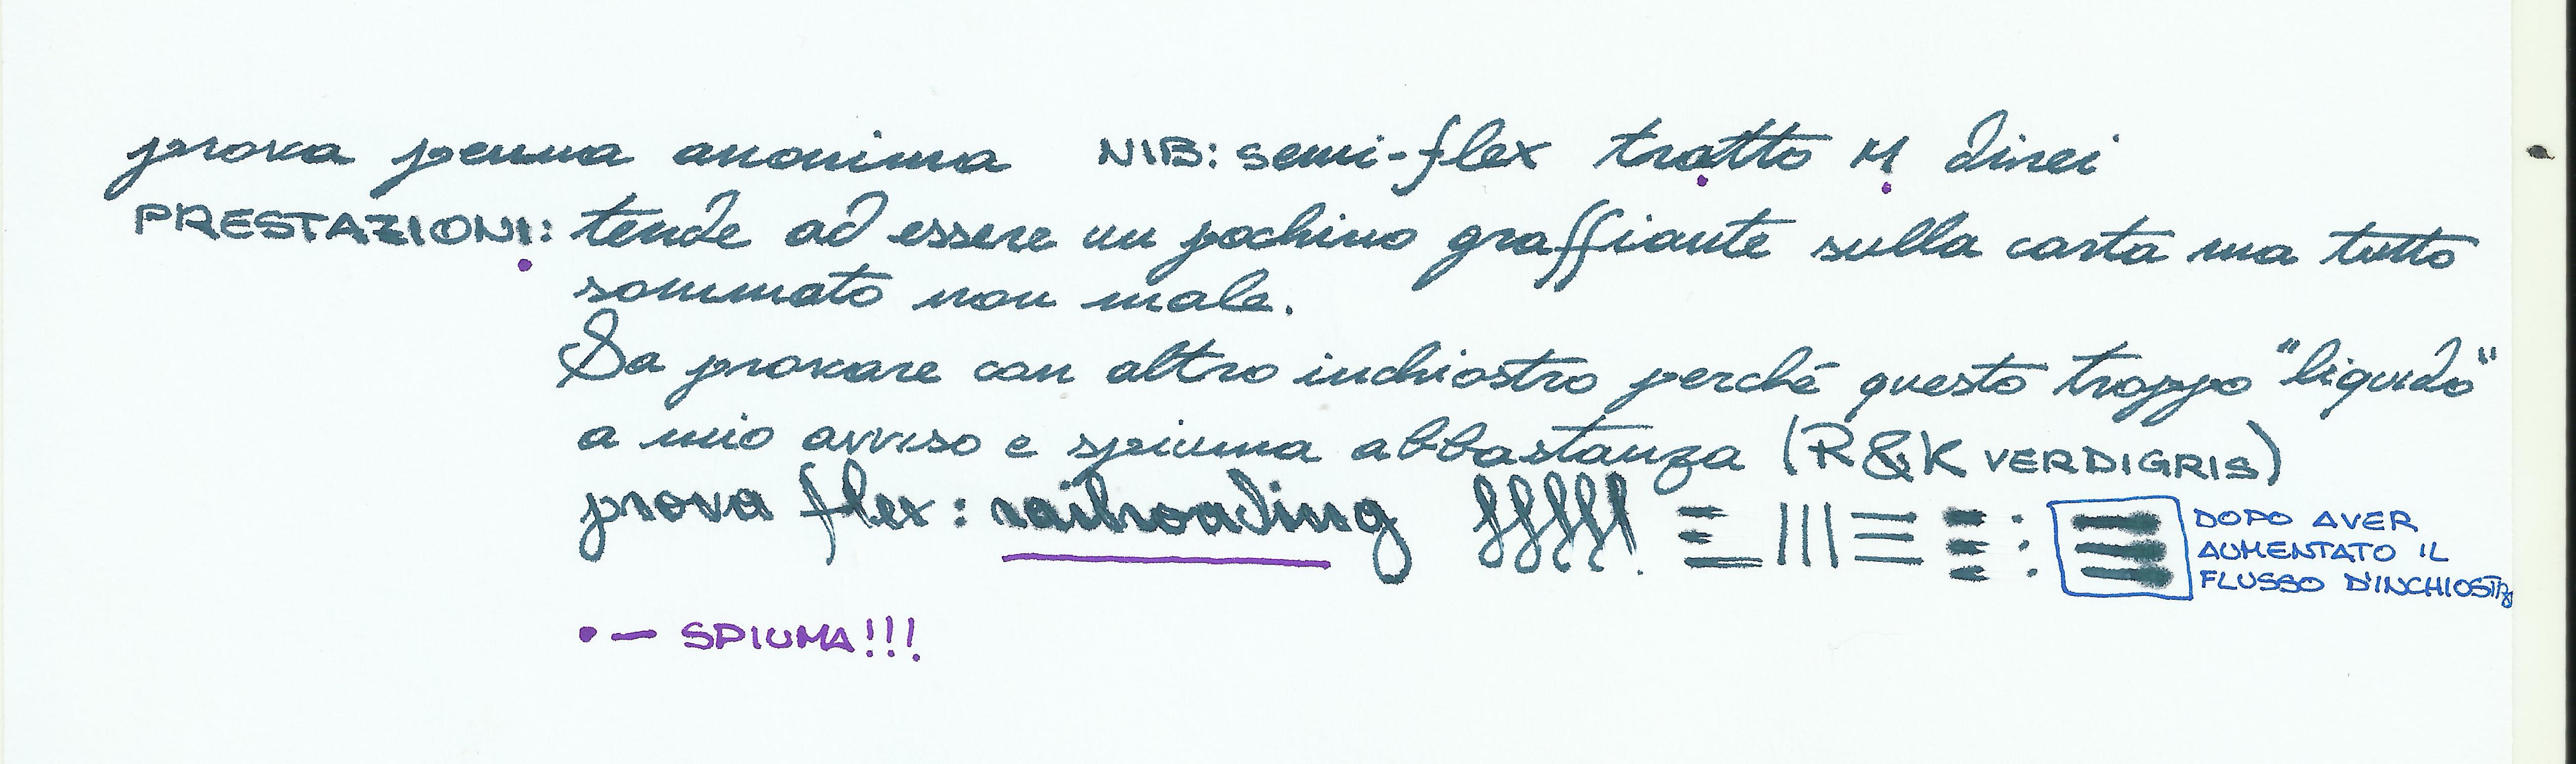 prova penna anonima NIB: semi-flex tratto M direi
PRESTAZIONI: tende ad essere un pochino graffiante sulla carta ma tutto
sommato non male.
Da provare con altro inchiostro perché questo troppo "liquido"
a mio avviso e spiuma abbastanza (R&K VERDIGRIS)
prova flex: railroading fffff
DOPO AVER
AUMENTATO IL
FLUSSO D'INCHIOSTRO
• — SPIUMA!!!